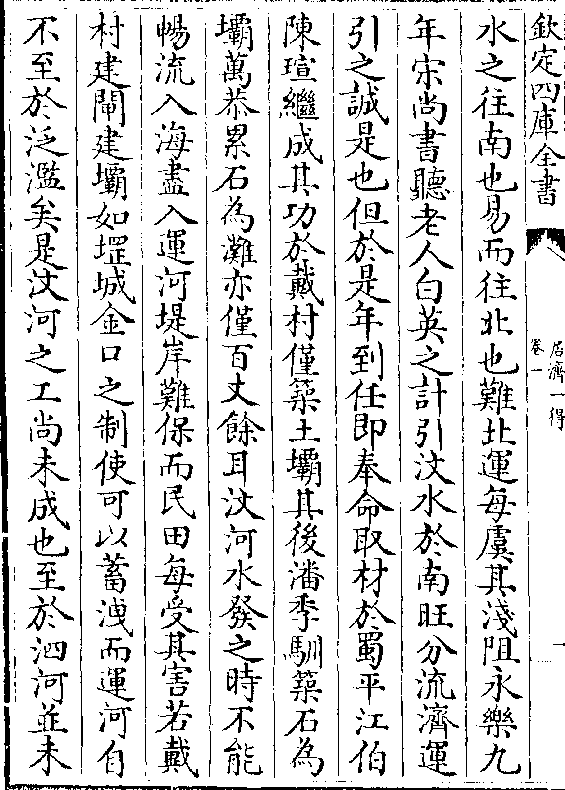 欽定四庫全書
居濟一得
卷一
一
水之往南也易而往北也難北運每虞其淺阻永樂九
年宋尚書聽老人白英之計引汶水於南旺分流濟運
引之誠是也但於是年到任即奉命取材於蜀平江伯
陳瑄繼成其功於戴村僅築土壩其後潘季馴築石為
壩萬恭累石為灘亦僅百丈餘耳汶河水發之時不能
暢流入海盡入運河堤岸難保而民田每受其害若戴
村建閘建壩如堽城金口之制使可以蓄洩而運河自
不至於泛濫矣是汶河之工尚未成也至於泗河並未